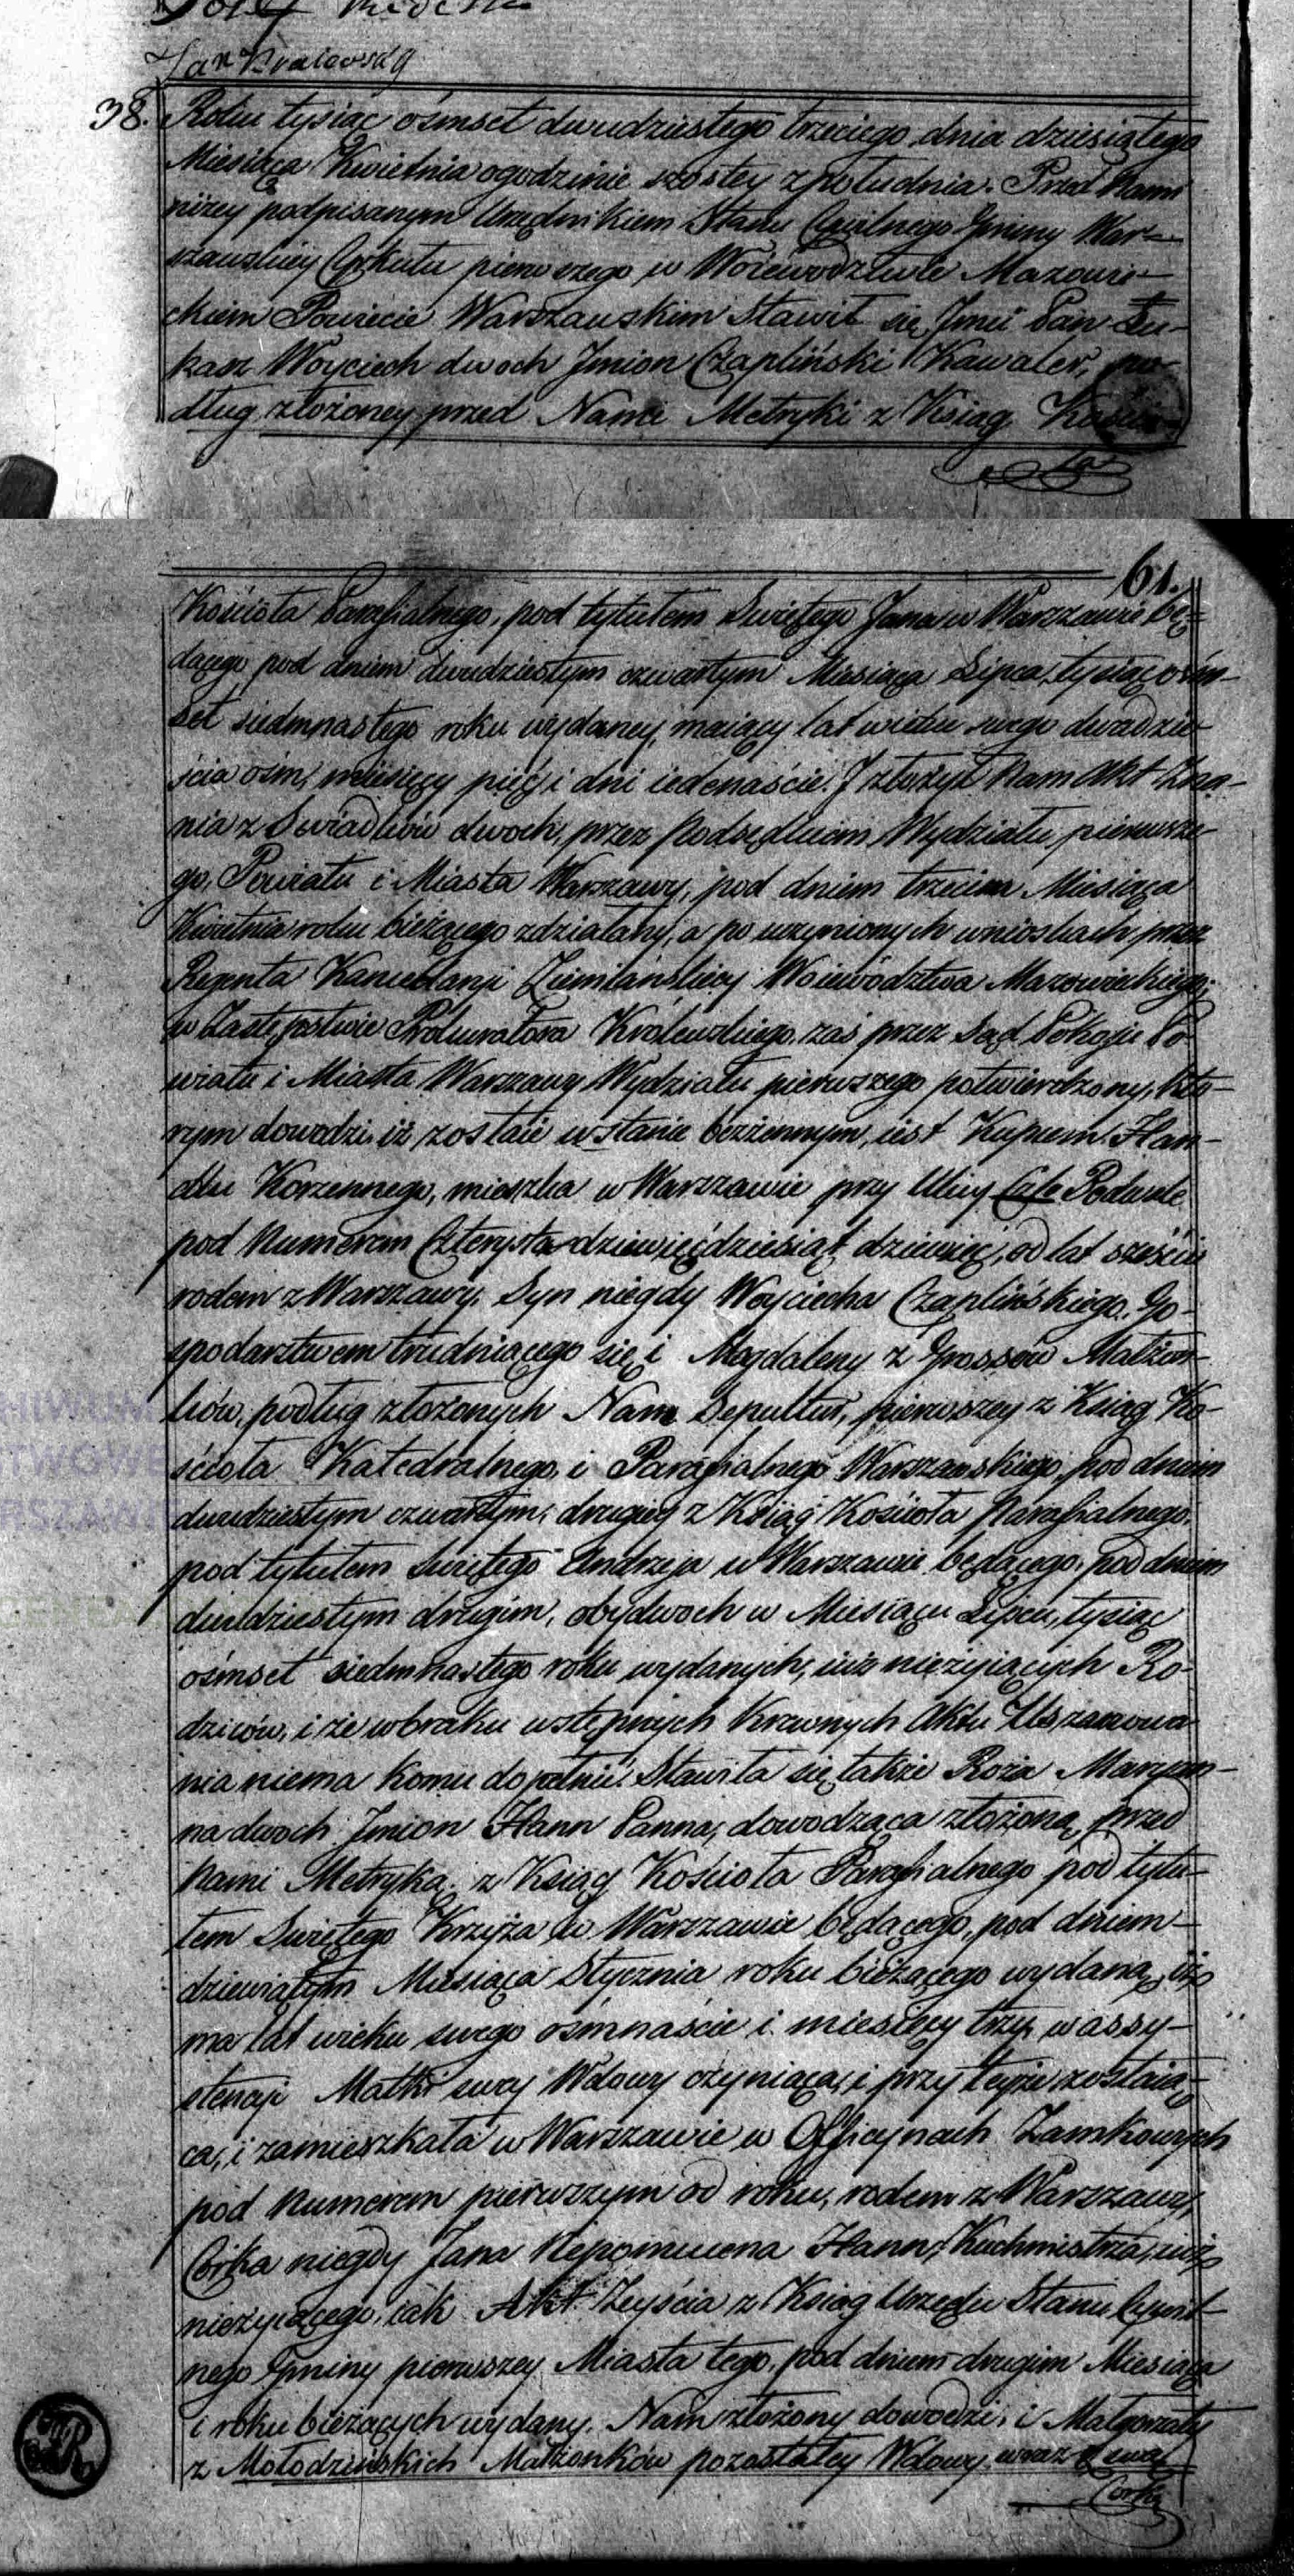 Jan Kralowsky
38. Roku tysiąc ośmset dwudziestego trzeciego, dnia dziesiątego
Miesiąca Kwietnia ogodzinie szóstey zpołudnia. Przed Nami
niżey podpisanym Urzędnikiem Stanu Cywilnego Gminy War-
szawskiey Cyrkułu pierwszego, w Woiewództwie Mazowie-
ckiem Powiecie Warszawskim Stawił się Jmć Pan Łu-
kasz Woyciech dwoch Jmion Czapliński Kawaler, po-
dług złożoney przed Nami Metryki z Ksiąg Kościo-
ła
61.
Kościoła Parafialnego, pod tytułem Swiętego Jana w Warszawie bę-
dącego pod dniem dwudziestym czwartym Miesiąca Lipca, tysiąc ośm-
set siedmnastego roku wydaney, maiący lat wieku swego dwadzie-
ścia ośm, miesięcy pięć i dni iedenaście. J złożył Nam Akt Zna-
nia z Swiadków dwoch, przez Podsędkiem Wydziału pierwsze-
go, Powiatu i Miasta Warszawy, pod dniem trzecim Miesiąca
Kwietnia roku bieżącego zdziałany, a po uczynionych wnioskach przez
Regenta Kancellaryi Ziemiańskiey Woiewództwa Mazowieckiego,
w Zastępstwie Prokuratora Królewskiego, zaś przez Sąd Pokoju Po-
wiatu i Miasta Warszawy Wydziału pierwszego potwierdzony, któ-
rym dowodzi, iż zostaie w stanie bezżennym, iest Kupcem Han-
dlu Korzennego, mieszka w Warszawie przy Ulicy Podwale
pod Numerem Czterysta dziewięćdziesiąt dziewięć, od lat sześciu
rodem z Warszawy. Syn niegdy Woyciecha Czaplińskiego, Go-
spodarstwem trudniącego się i Magdaleny z Grossów Małżon-
ków, podług złożonych Nam Sepultur, pierwszey z Ksiąg Ko-
ścioła Katedralnego, i Parafialnego Warszawskiego, pod dniem
dwudziestym czwartym, drugiey z Ksiąg Kościoła Parafialnego,
pod tytułem Swiętego Andrzeja w Warszawie będącego, pod dniem
dwudziestym drugim, obydwoch w Miesiącu Lipcu, tysiąc
ośmset siedmnastego roku wydanych, iuż nieżyiących Ro-
dziców, i że wbraku wstępnych Krewnych Aktu Uszanowa-
nia niema komu dopełnić. Stawiła się także Roża Maryan-
na dwoch Jmion Hann Panna, dowodząca złożoną przed
Nami Metryką, z Ksiąg Kościoła Parafialnego pod tytu-
łem Swiętego Krzyża w Warszawie będącego, pod dniem
dziewiątym Miesiąca Stycznia roku bieżącego wydaną, iż
ma lat wieku swego ośmnaście i miesięcy trzy, w assy-
stencyi Matki swey Wdowy czyniąca, i przy teyże zostaią-
ca, i zamieszkała w Warszawie w Officynach Zamkowych
pod Numerem pierwszym od roku, rodem z Warszawy,
Córka niegdy Jana Nepomucena Hann, Kuchmistrza, iuż
nieżyiącego, iak Akt Zeyścia z Ksiąg Urzędu Stanu Cywil-
nego Gminy pierwszey Miasta tego, pod dniem drugim Miesiąca
i roku bieżących wydany, Nam złożony dowodzi, i Małgorzaty
z Mołodzińskich Małżonków pozostałey Wdowy, wraz z swą
Corką